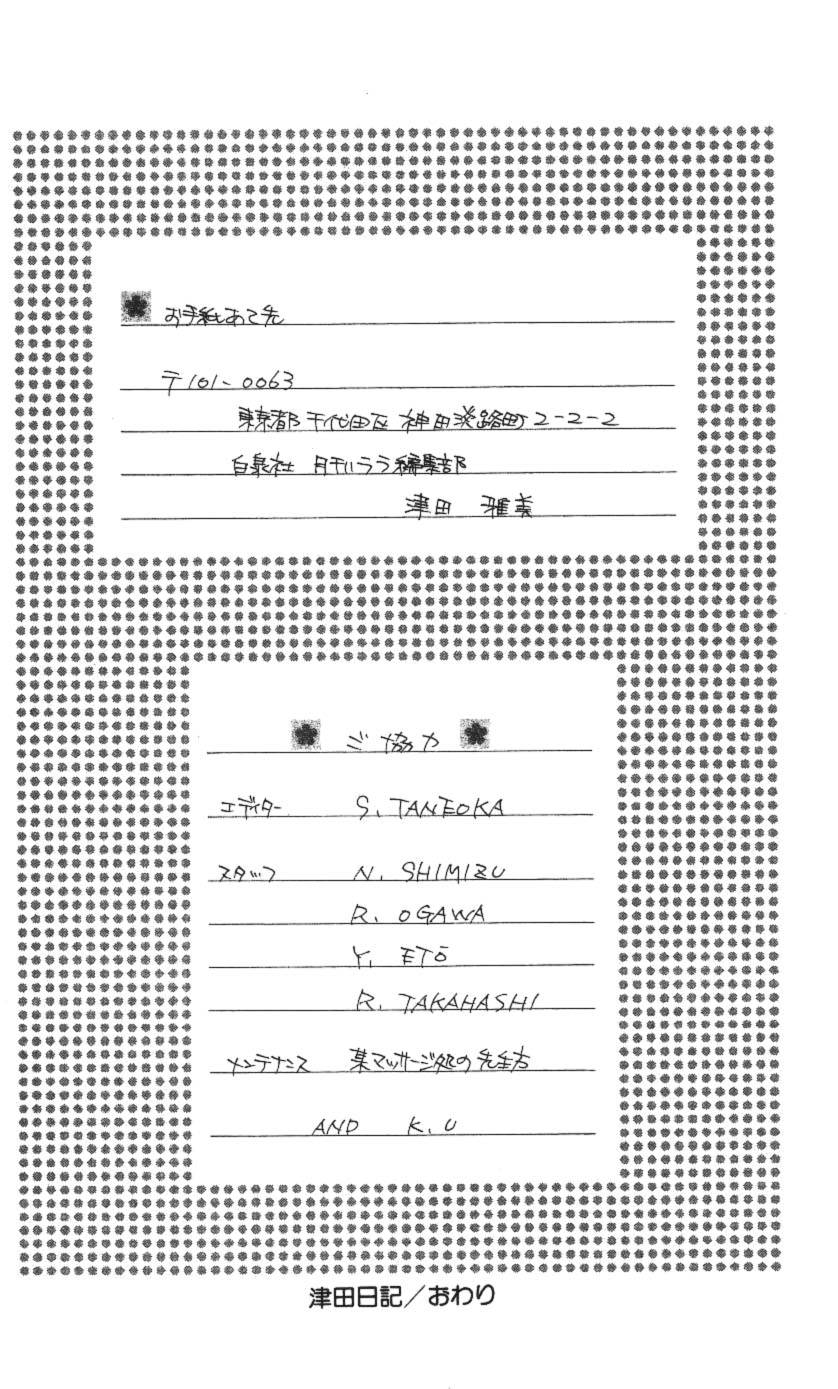 お手紙あて先
〒101-0063
東京都千代田区神田淡路町2-2-2
白泉社 月刊ララ編集部
津田 雅美
ご協力
エディター S. TANEOKA
スタッフ N. SHIMIZU
R. OGAWA
Y. ETŌ
R. TAKAHASHI
メンテナンス 某マッサージ処の先生方
AND K. U
津田日記／おわり